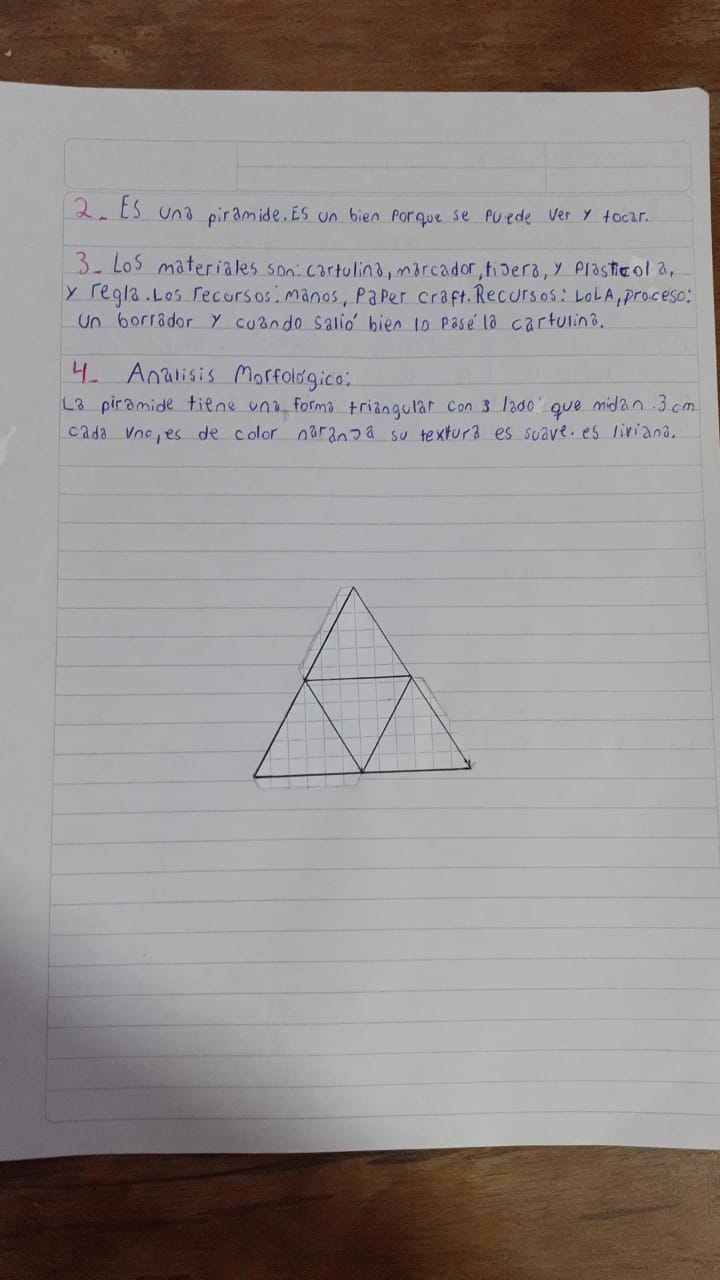 2. Es una piramide. Es un bien porque se puede ver y tocar.
3. Los materiales son: cartulina, marcador, tijera, y plasticola,
y regla. Los recursos: manos, paper craft. Recursos: LOLA, proceso:
un borrador y cuando salió bien lo pasé la cartulina.
4. Analisis Morfológico:
La piramide tiene una forma triangular con 3 lado que midan 3 cm
cada uno, es de color naranja su textura es suave. es liviana.